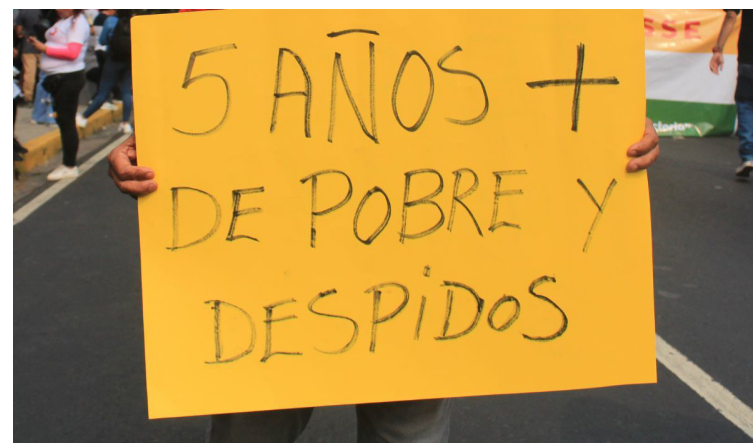 5 AÑOS +
DE POBRE Y
DESPiDOS
SSE